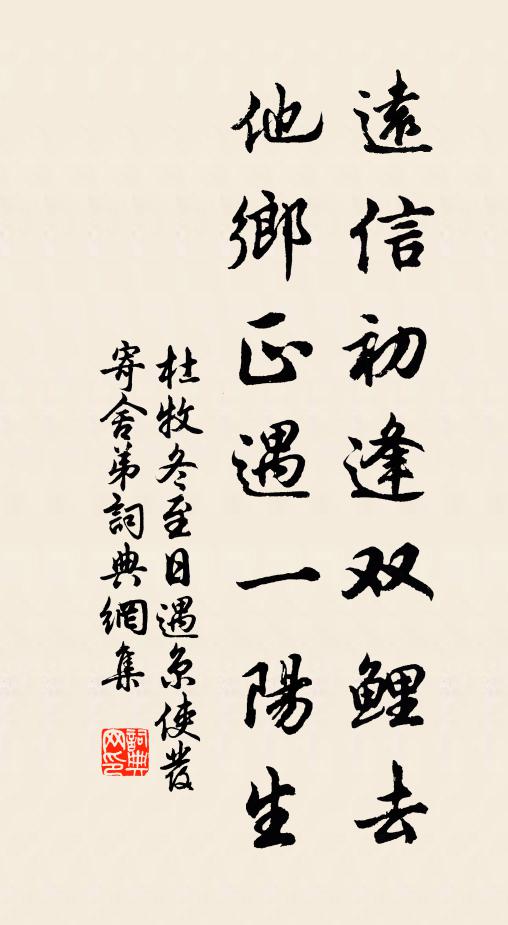 遠信初逢双鲤去
他鄉正遇一陽生
杜牧冬至日遇京使發
寄舍弟詞典網集
詞典网印